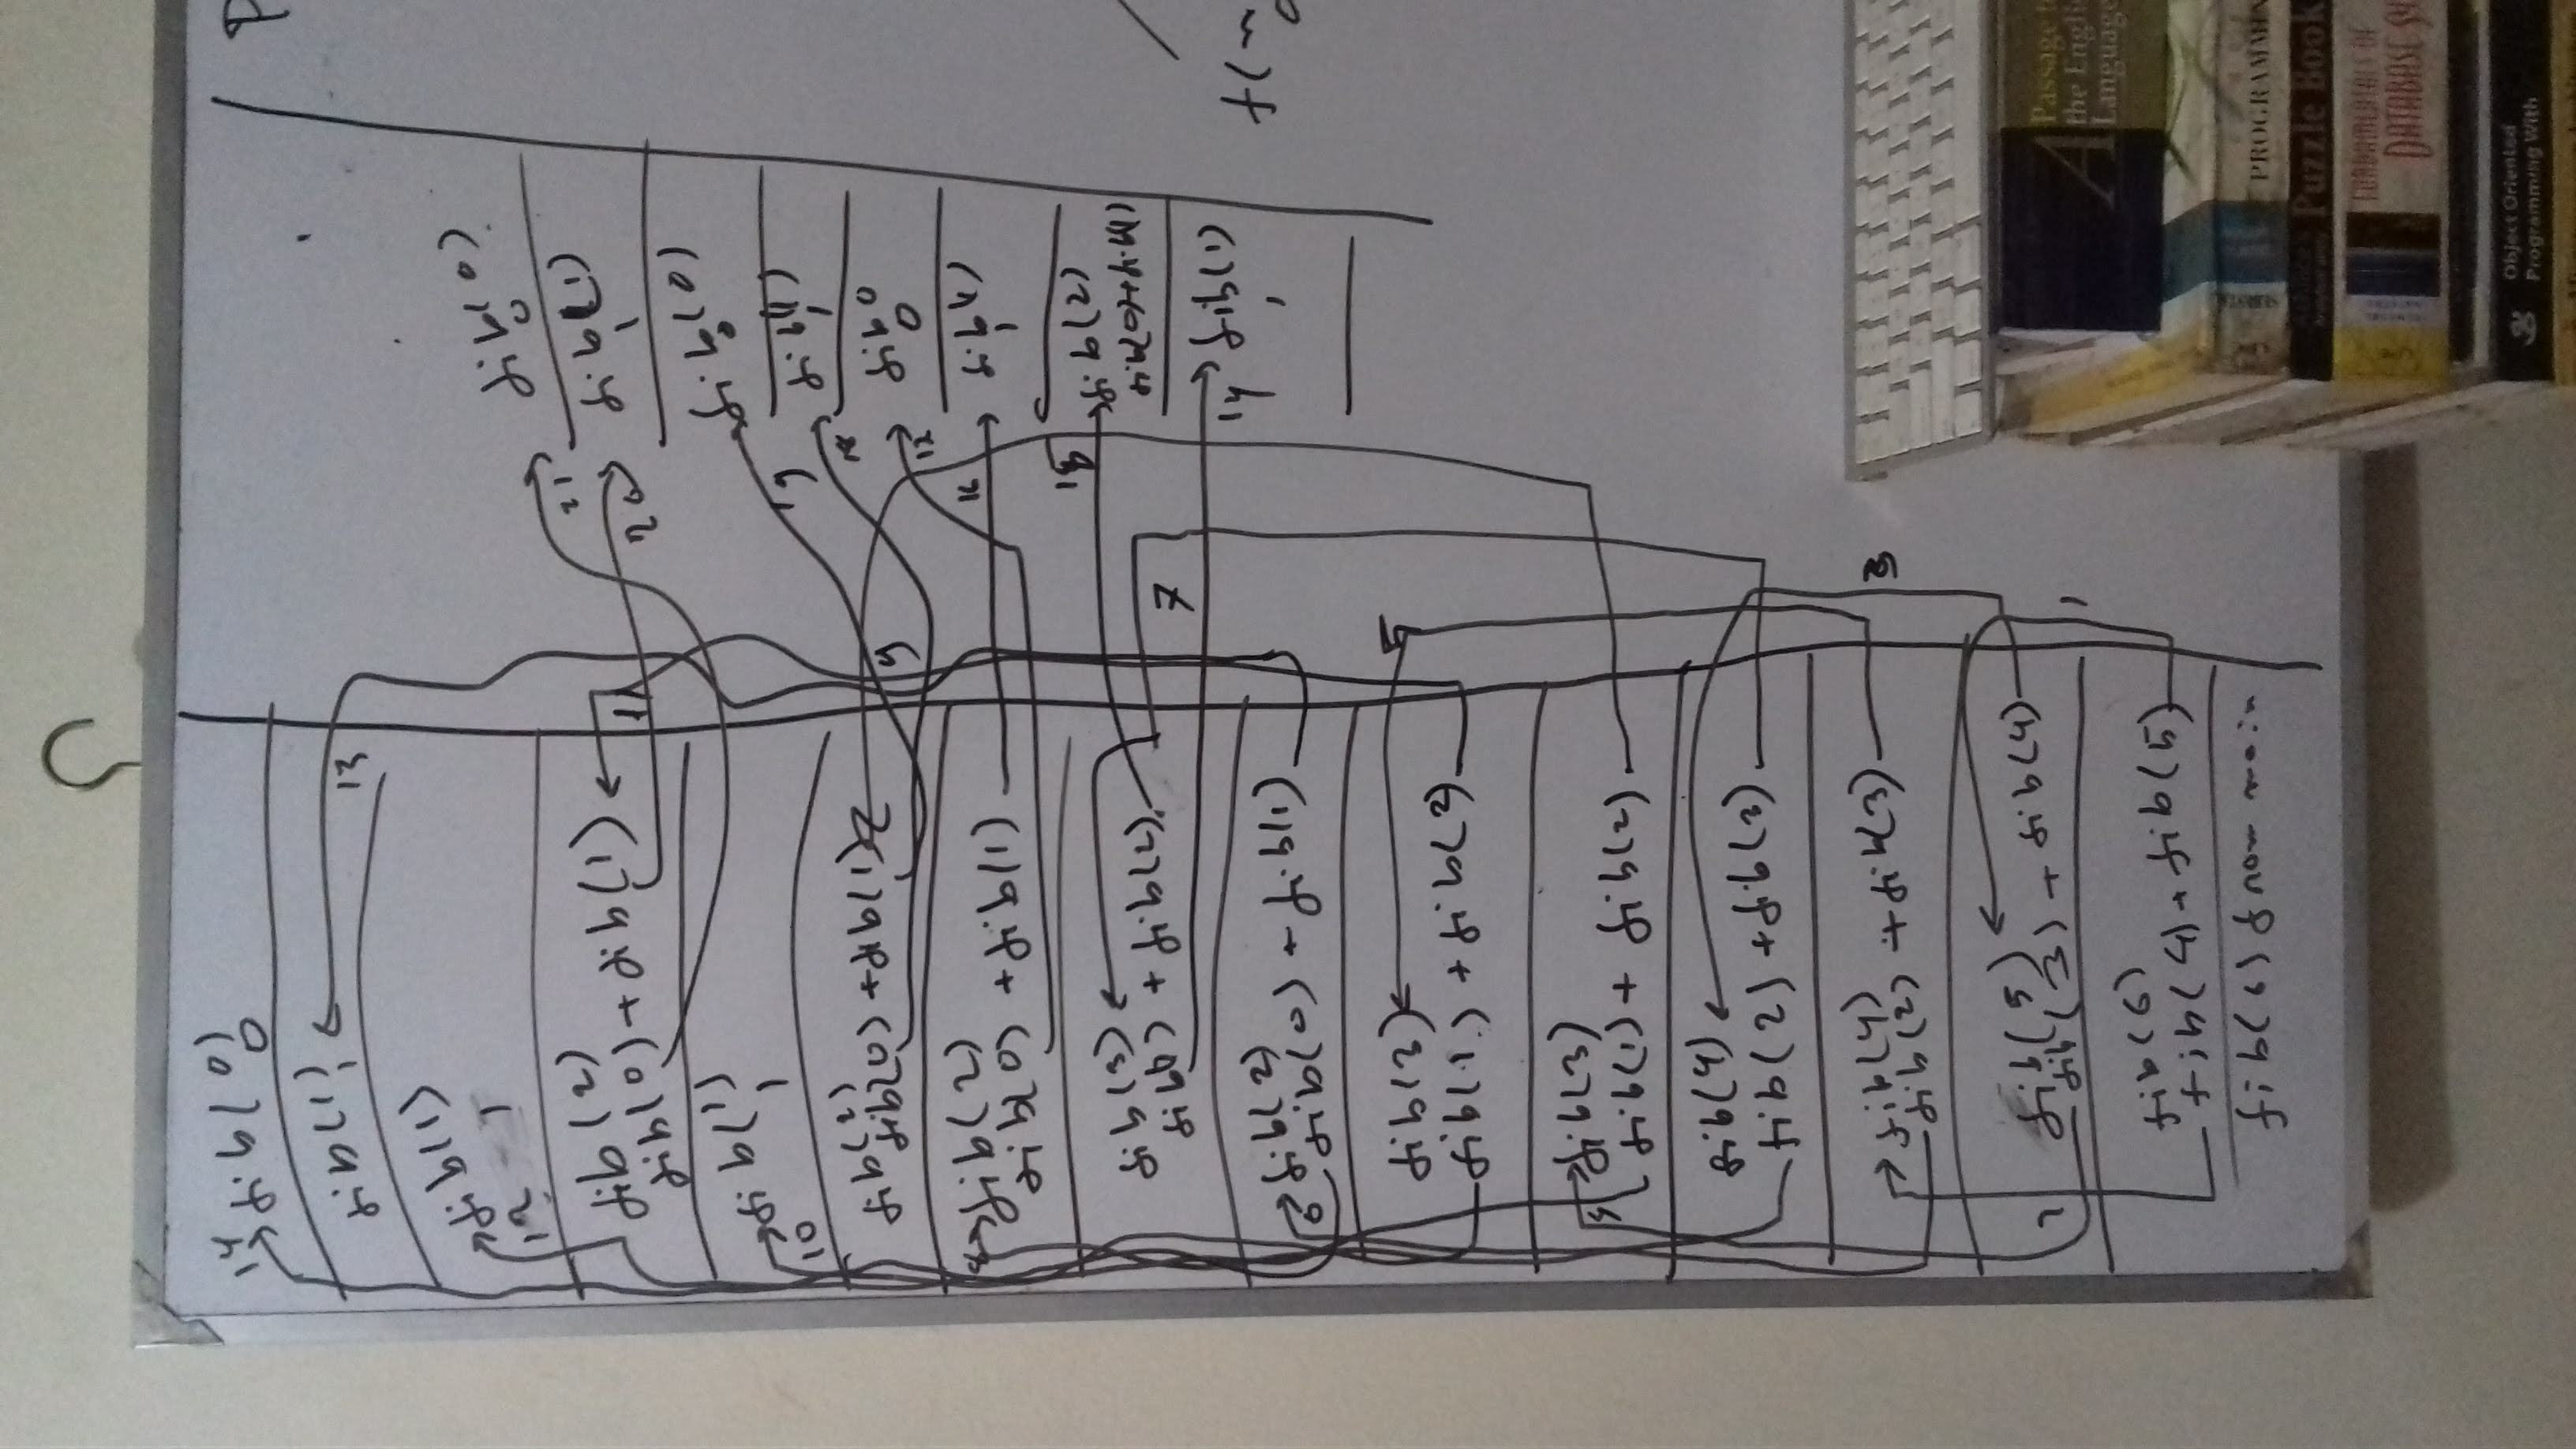 14 fib(0)
0
fib(1)
1
13
fib(1)
12 1
fib(2)
fib(0) + fib(1)
11
fib(1)
10 1
fib(2)
fib(0) + fib(1)
9
fib(2)
fib(0) + fib(1)
fib(3)
fib(1) + fib(2)
7
6 fib(2)
fib(0) + fib(1)
fib(3)
5
fib(1) + fib(2)
fib(3)
fib(1) + fib(2)
fib(4)
fib(2) + fib(3)
fib(4)
fib(2) + fib(3)
3
fib(5)
2 fib(3) + fib(4)
1
fib(6)
fib(4) + fib(5)
fib(6) from main
fib(0)
21 0
fib(1)
20 1
fib(0)
0
19
fib(1)
18 1
fib 0
0
fib(1)
16
1
15 fib(2)
fib(0)+fib(1)
14 fib(1)
1
P
f(n
A Passage to
the English
Language
PROGRAMMIN
Puzzle Book
FUNDAMENTALS OF
DATABASE SY
Object Oriented
Programming With